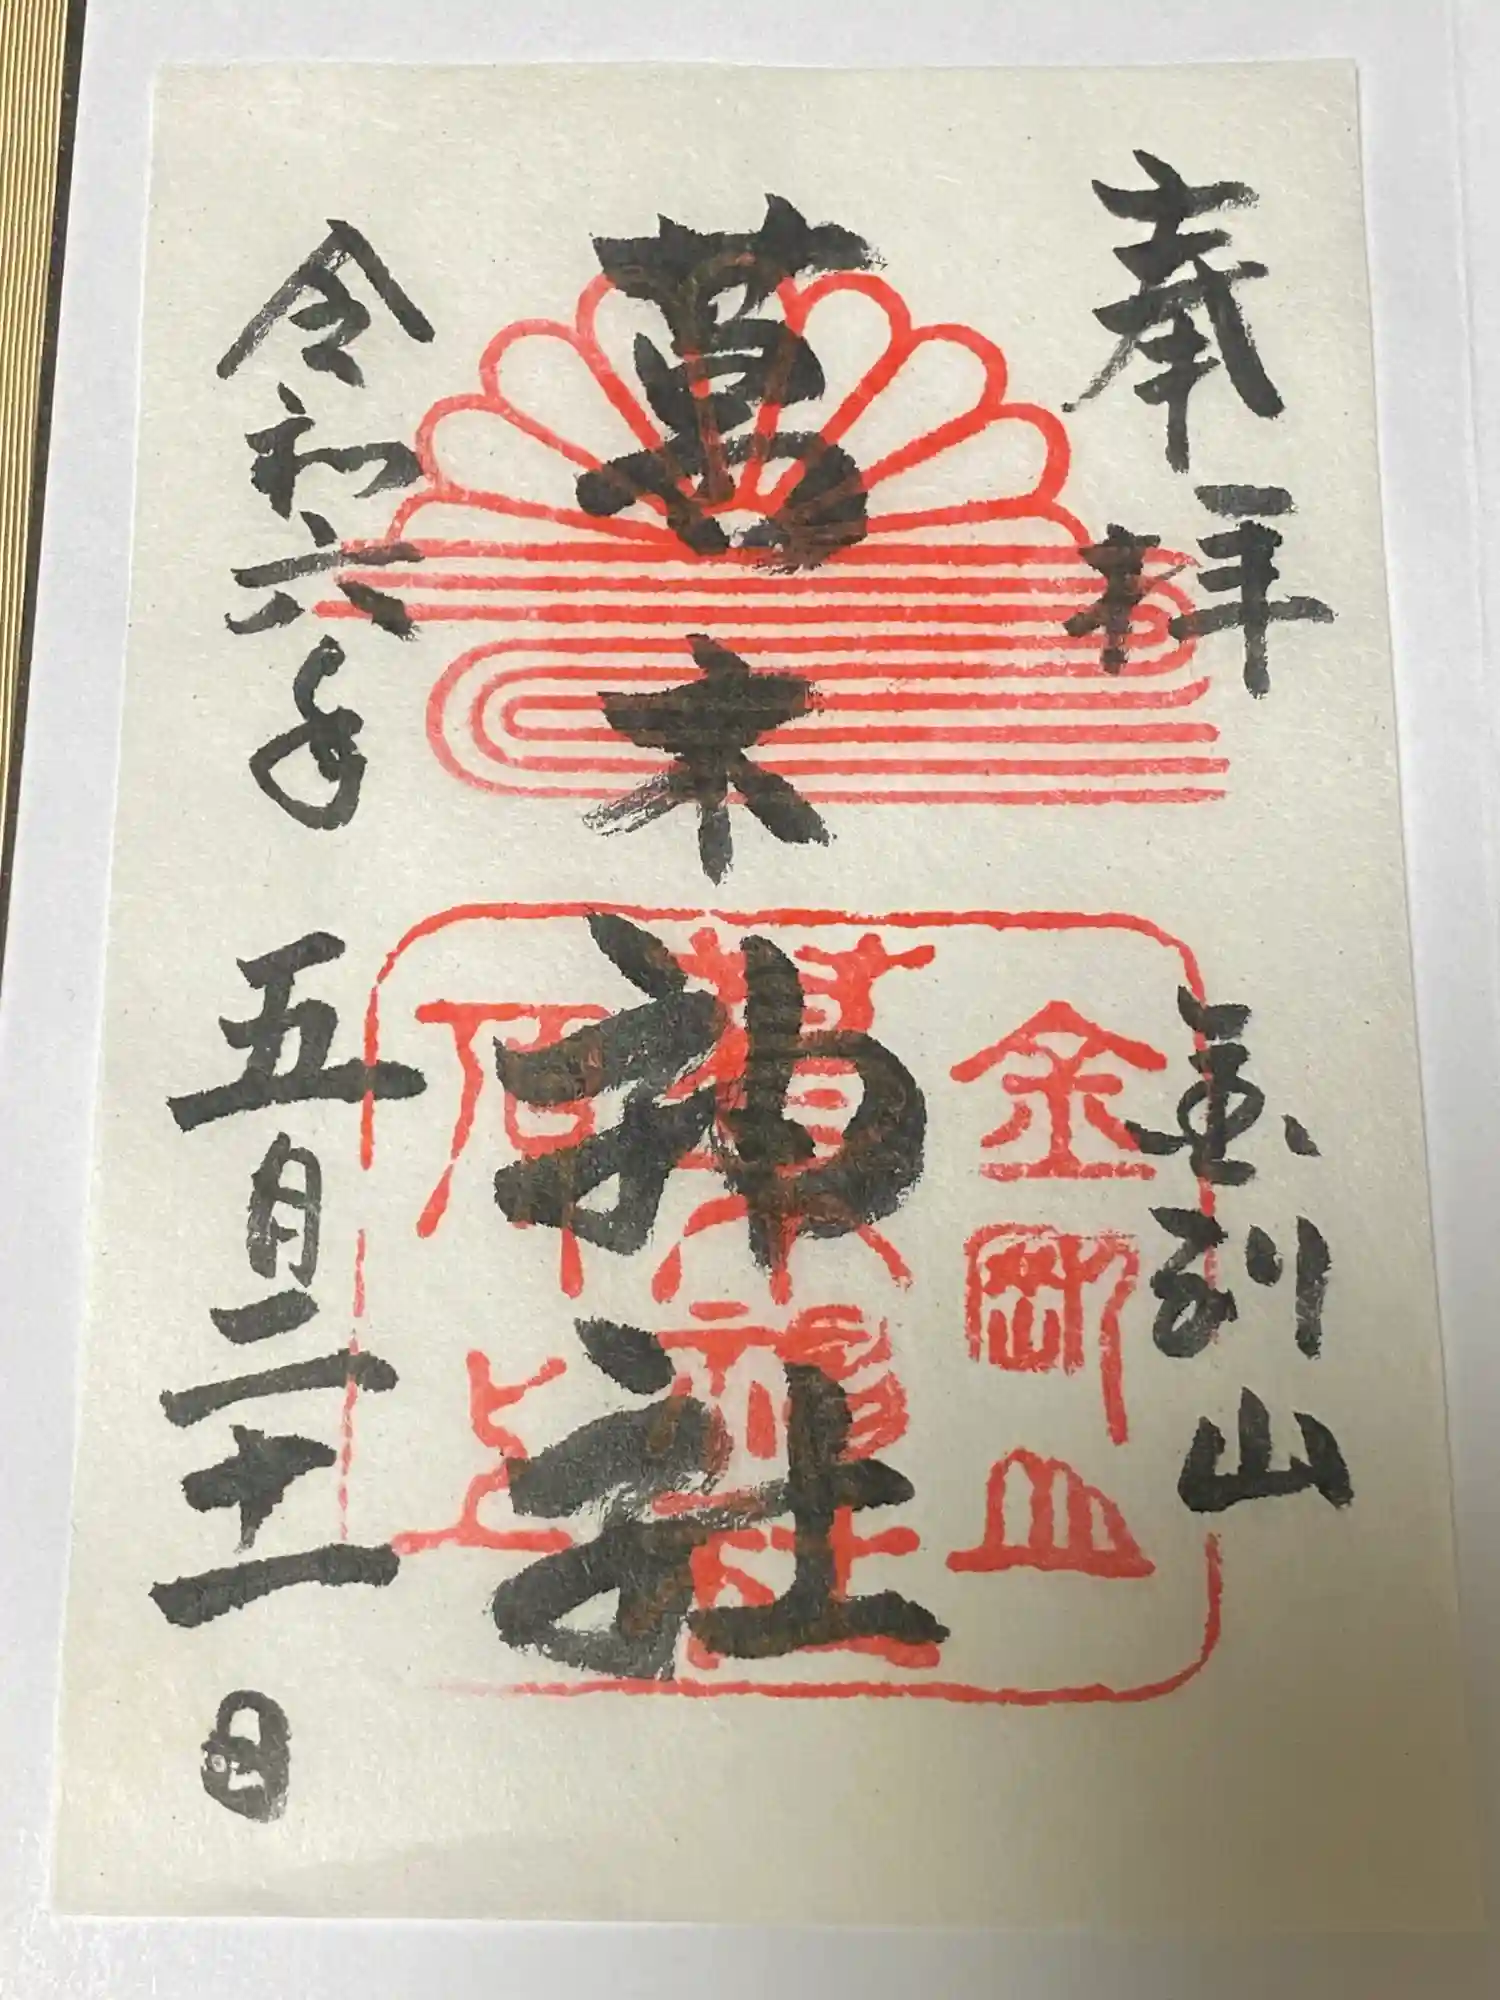 奉拝
金剛山
葛木神社
金剛山
葛木神社
頂上
令和六年五月二十一日